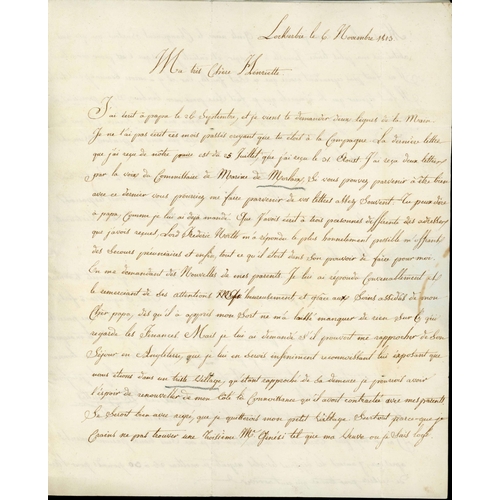 Lockerbie le 6 Novembre 1813
Ma très Chère Henriette
J'ai écrit à papa le 26 Septembre, et je viens te demander deux lignes de ta Main.
Je ne t'ai pas écrit ces mois passés croyant que tu étois à la Campagne. La dernière lettre
que j'ai reçu de notre est du 15 Juillet, que j'ai reçu le 31 Aoust. J'ai reçu deux lettres
par la voix du Commissaire de Marine de Morlaix, Si vous pouvez parvenir à être bien
avec ce dernier vous pourriez me faire parvenir de vos lettres assez Souvent. tu peux dire
à papa, Comme je lui ai déja mandé. Que j'avois écrit à trois personnes differentes des adresses
que j'avois reçues, Lord Frederic North m'a répondu le plus honnetement possible en m'offrant
des Secours pécuniaires et enfin, tout ce qu'il étoit dans Son pouvoir de faire pour moi
En me demandant des Nouvelles de mes parents. Je lui ai répondu Convenablement et
le remerciant de ses attentions et grâce aux Soins assidus de mon
Cher papa, dès qu'il a appris mon Sort ne m'a laissé manquer de rien Sur Ce qui
regarde les Finances Mais je lui ai demandé S'il pouvoit me rapprocher de Son
Séjour en Angleterre, que je lui en serois infiniment reconnoissant lui exposant que
nous étions dans un triste Village, qu'étant rapproché de Sa demeure je pourrois avoir
l'espoir de renouveller de mon Coté la Connoissance qu'il avoit contractée avec mes parents
Ce Seroit bien avec regret, que je quitterois mon petit Village Surtout parceque je
Crains ne pas trouver une troisième Me tel que ma Veuve ou je Suis logé